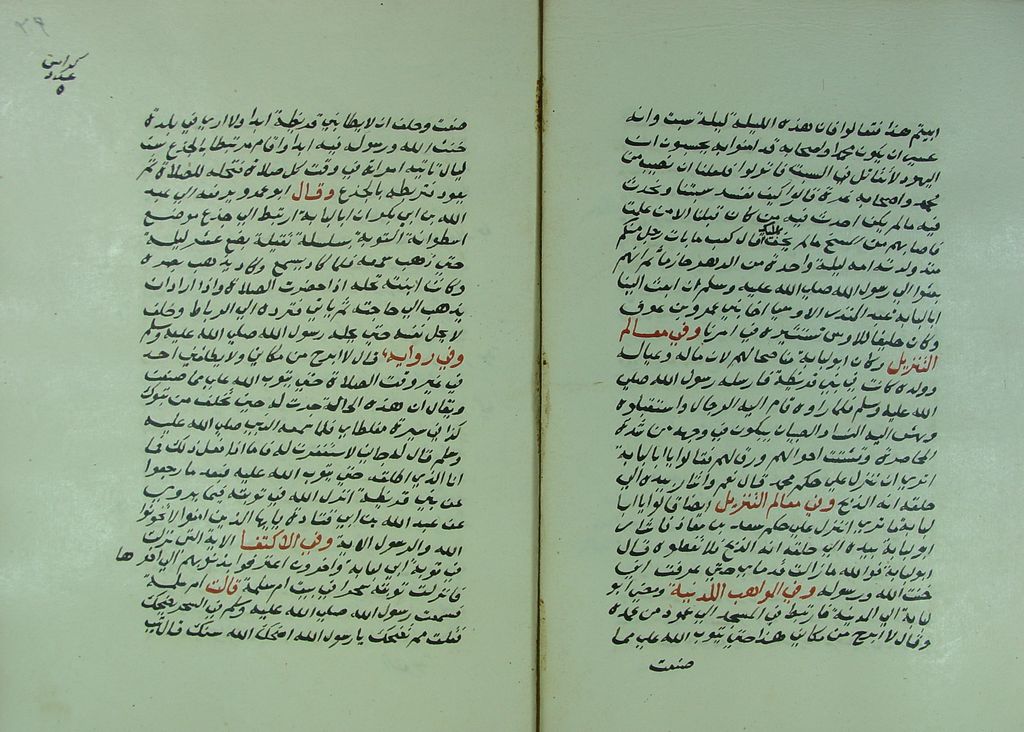 ابيتم هذا فقالوا فان هذه الليلة ليلة سبت وانه
عسى ان يكون محمد واصحابه قد امنوا به يحسبون ان
اليهود لا تقاتل في السبت فانزلوا فلعلنا ان نصيب من
محمد واصحابه غرة قالوا كيف نفسد سبتنا ونحدث
فيه ما لم يكن احدث فيه من كان قبلنا الا من علمت
فاصابهم من المسخ ما لم يخف عليك قال كعب ما بات رجل منكم
منذ ولدته امه ليلة واحدة من الدهر حازما ثم انهم
بعثوا الى رسول الله صلى الله عليه وسلم ان ابعث الينا
ابا لبابة بن عبد المنذر الاوسي اخا بني عمرو بن عوف
وكان حليفا للاوس نستشيره في امرنا وفي معالم
التنزيل وكان ابو لبابة مناصحا لهم لان ماله وعياله
وولده كانت في بني قريظة فارسله رسول الله صلى
الله عليه وسلم فلما راوه قام اليه الرجال واستقبلوه
وبهش اليه النساء والصبيان يبكون في وجهه من شدة
المحاصرة وتشتت احوالهم ورق لهم فقالوا يا ابا لبابة
اترى ان ننزل على حكم محمد قال نعم واشار بيده الى
حلقه انه الذبح وفي معالم التنزيل ايضا قالوا يا ابا
لبابة ما ترى اننزل على حكم سعد بن معاذ فاشار
ابو لبابة بيده الى حلقه انه الذبح فلا تفعلوه قال
ابو لبابة فوالله ما زالت قدماي حتى عرفت اني
خنت الله ورسوله وفي المواهب اللدنية ومضى ابو
لبابة الى المدينة فارتبط في المسجد الى عمود من عمده
وقال لا ابرح من مكاني هذا حتى يتوب الله علي مما
صنعت
كراس
عدد
٥
صنعت وحلف ان لا يطا بني قريظة ابدا ولا ارى في بلدة
خنت الله ورسوله فيه ابدا واقام مرتبطا بالجذع ست
ليال تاتيه امراته في وقت كل صلاة فتحله للصلاة ثم
يعود فتربطه بالجذع وقال ابو عمر ويرفعه الى عبد
الله بن ابي بكر ان ابا لبابة ارتبط الى جذع موضع
اسطوانة التوبة بسلسلة ثقيلة بضع عشر ليلة
حتى ذهب سمعه فلما كاد يسمع وكاد يذهب بصره
وكانت ابنته تحله اذا حضرت الصلاة واذا اراد ان
يذهب الى حاجته ثم ياتي فترده الى الرباط وحلف
لا يحل نفسه حتى يحله رسول الله صلى الله عليه وسلم
وفي رواية قال لا ابرح من مكاني ولا يطلقني احد
في غير وقت الصلاة حتى يتوب الله علي مما صنعت
ويقال ان هذه الحالة حدثت له حين تخلف من تبوك
كذا في سيرة مغلطاي فلما سمعه النبي صلى الله عليه
وسلم قال لو جاني لاستغفرت له فاما اذا فعل ذلك فما
انا الذي اطلقه حتى يتوب الله عليه فبعد ما رجعوا
عن بني قريظة انزل الله في توبته فيما يروى
عن عبد الله بن ابي قتادة يا ايها الذين امنوا لا تخونوا
الله والرسول الاية وفي الاكتفا الاية التي نزلت
في توبة ابي لبابة واخرون اعترفوا بذنوبهم الى اخرها
فانزلت توبته سحرا في بيت ام سلمة قالت ام سلمة
فسمعت رسول الله صلى الله عليه وسلم في السحر يضحك
فقلت مم تضحك يا رسول الله اضحك الله سنك قال تيب